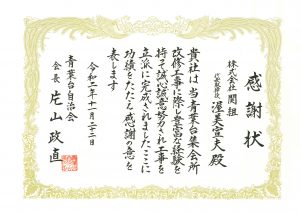 感謝状
株式会社 関組
代表取締役 渥美宣夫殿
貴社は当青葉台集会所
改修工事に際し豊富な経験を
持って誠心誠意努力され工事を
立派に完成されましたここに
功績をたたえ感謝の意を
表します
令和二年十一月二十二日
青葉台自治会
会長 片山政直